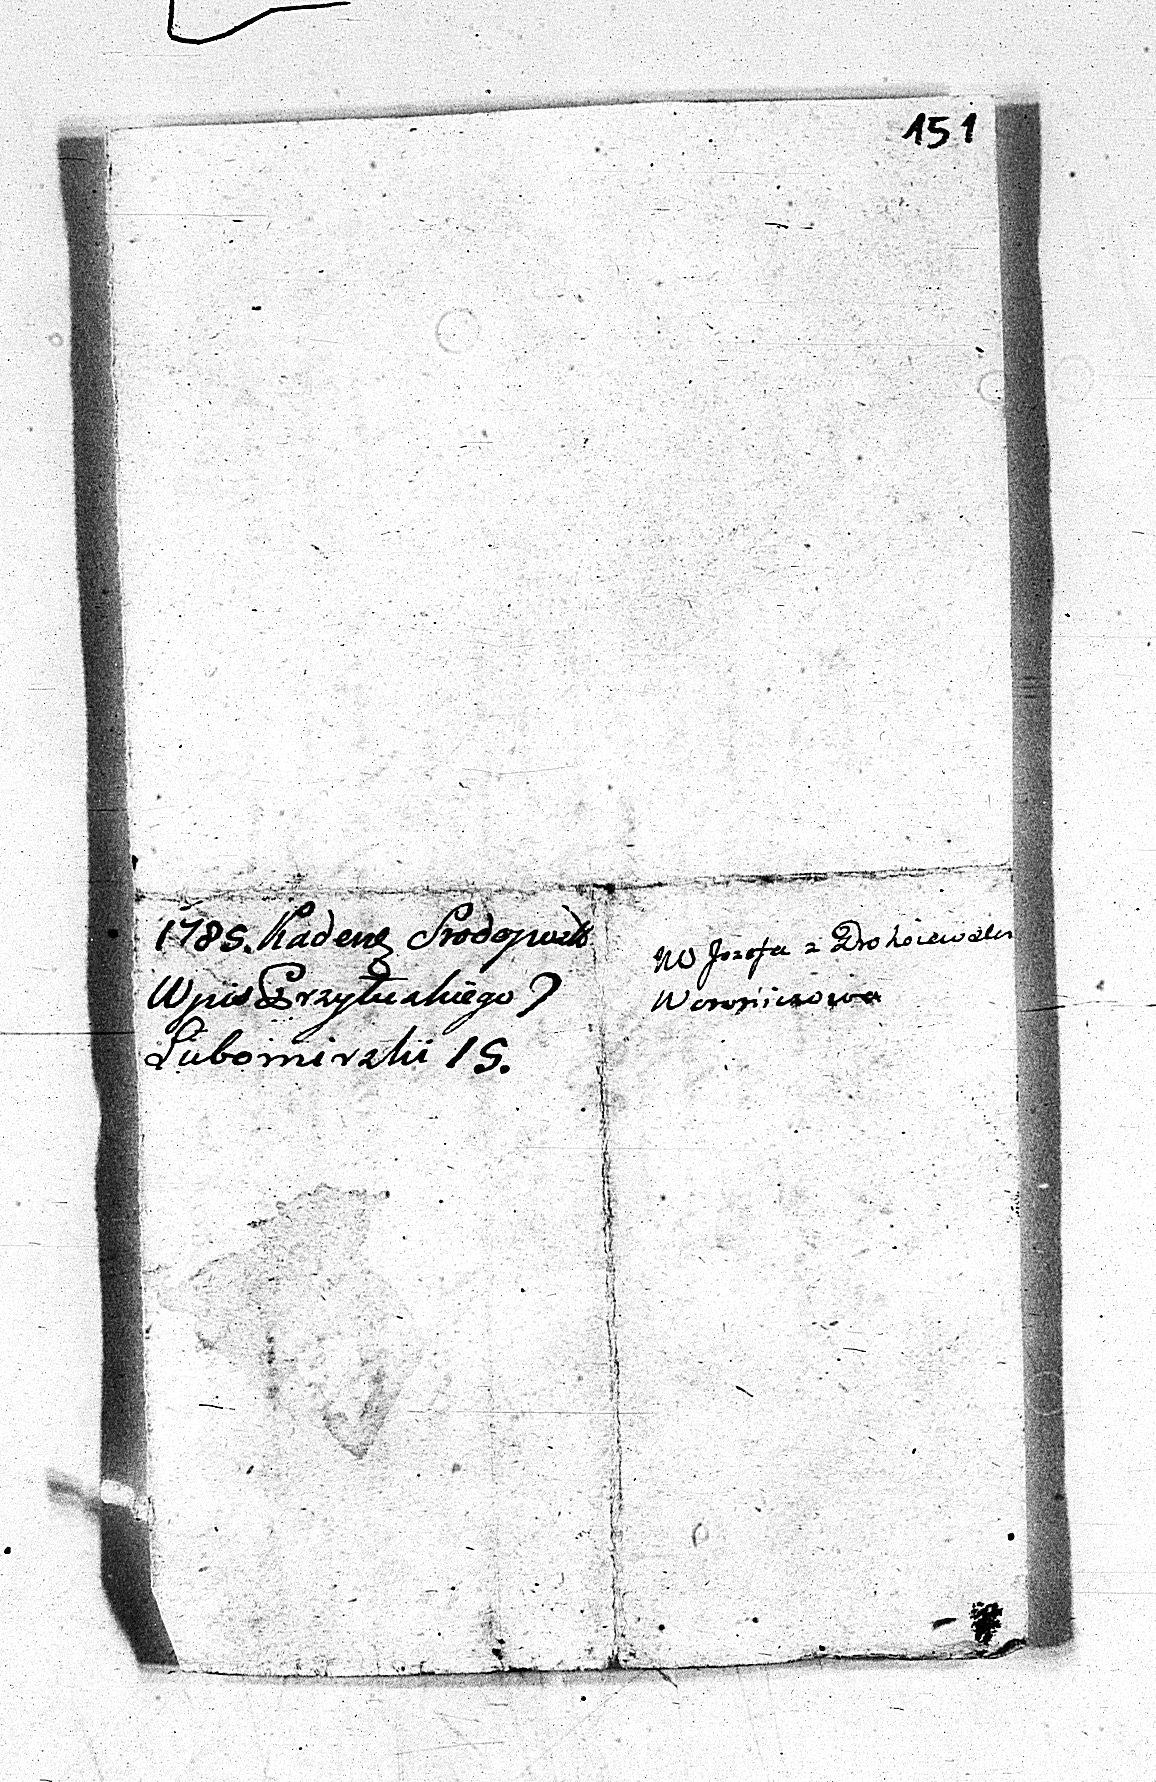 151
1785. Kadenz Srodopostt
Wpis Przyłuskiego
Lubomirskii 15.
WJ Jozefa z Drohoiewskich
Woroniczowa